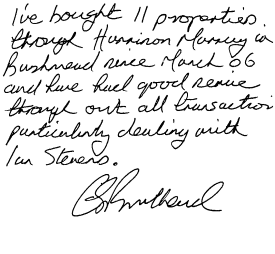 I've bought 11 properties
through Harrison Murray in
Bushmead since March 06
and have had good service
through out all transaction
particularly dealing with
Ian Stevens.